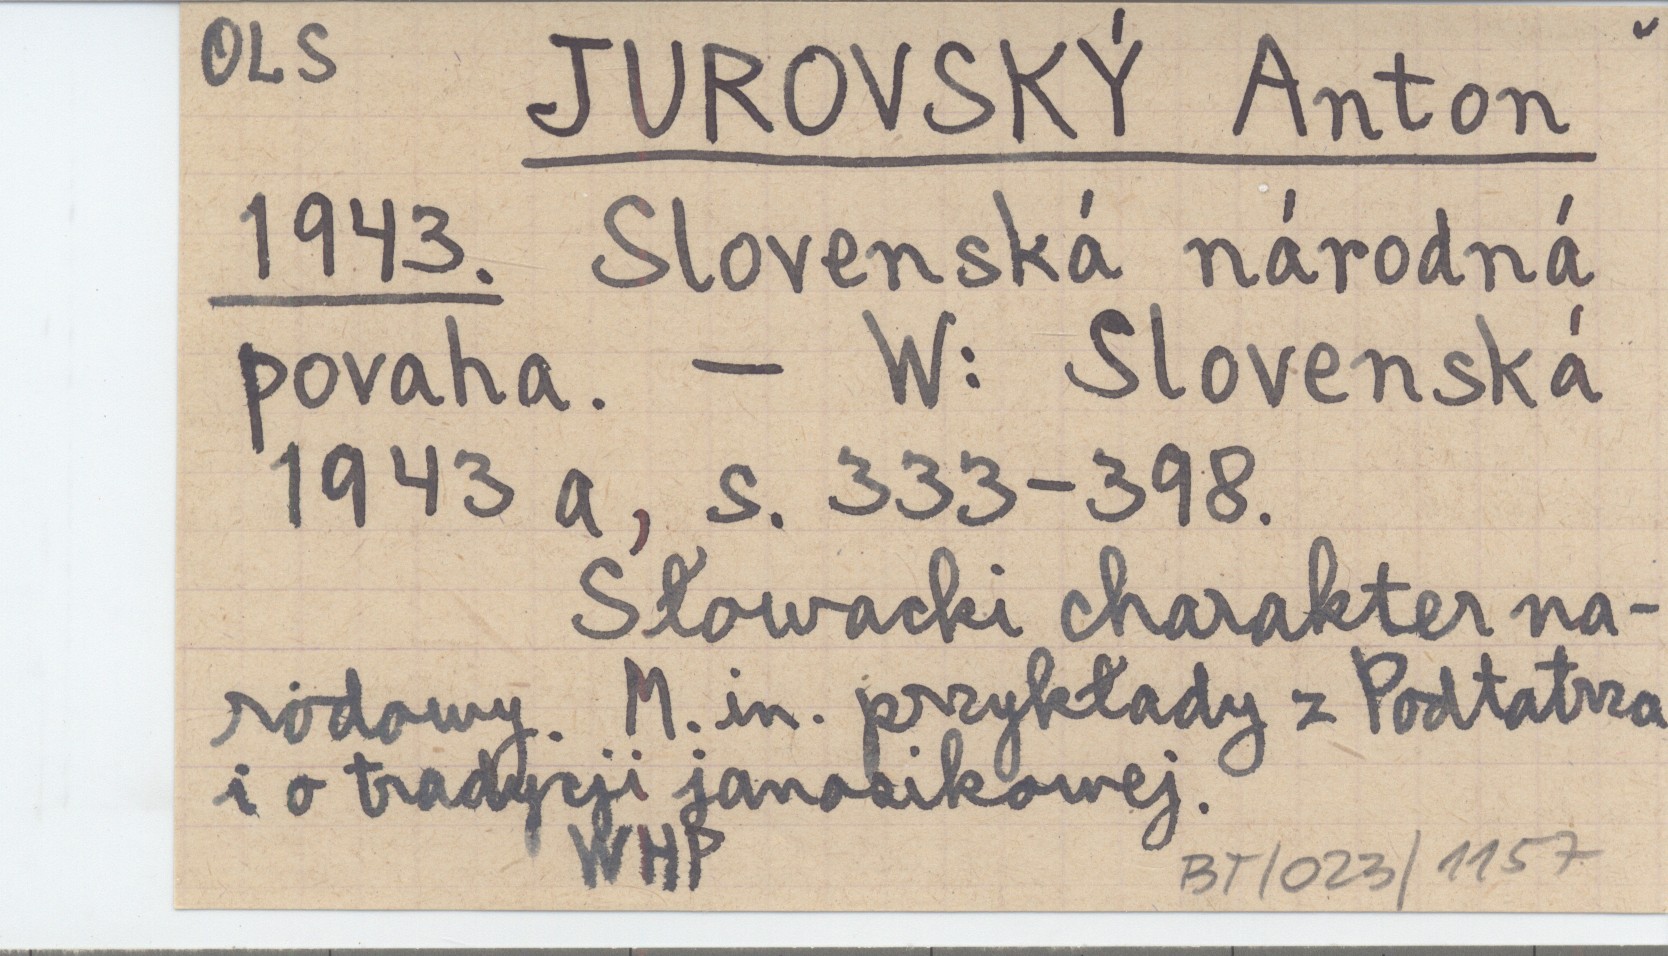 OLS JUROVSKÝ Anton
1943. Slovenská národná
povaha. – W: Slovenská
1943 a, s. 333–398.
Słowacki charakter na-
rodowy. M. in. przykłady z Podtatrza
i o tradycji janosikowej.
WHP BT/023/1157